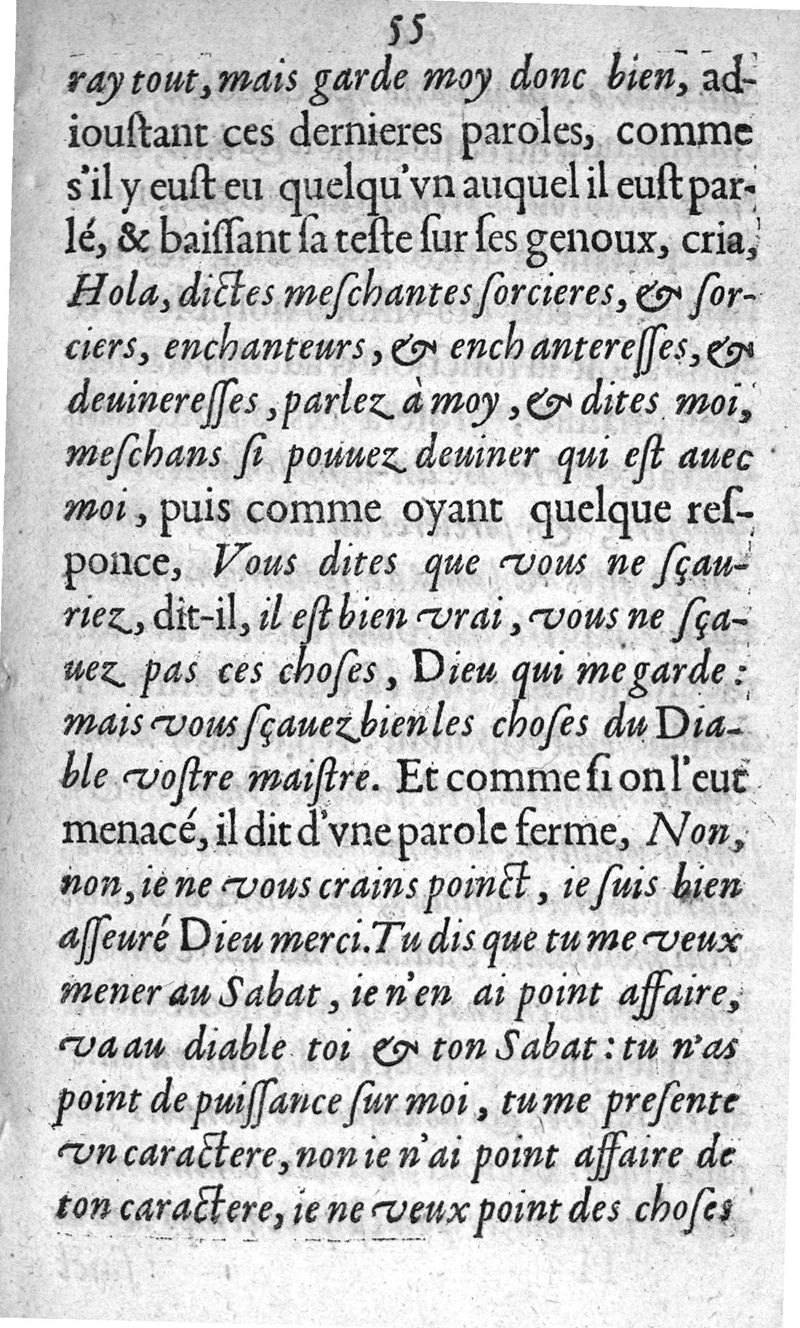 55
ray tout, mais garde moy donc bien, ad-
iouſtant ces dernieres paroles, comme
s'il y euſt eu quelqu'vn auquel il euſt par-
lé, & baiſſant ſa teſte ſur ſes genoux, cria,
Hola, dictes meſchantes ſorcieres, & ſor-
ciers, enchanteurs, & enchantereſſes, &
deuinereſſes, parlez à moy, & dites moi,
meſchans ſi pouuez deuiner qui eſt auec
moi, puis comme oyant quelque reſ-
ponce, Vous dites que vous ne ſçau-
riez, dit-il, il eſt bien vrai, vous ne ſça-
uez pas ces choſes, Dieu qui me garde:
mais vous ſçauez bien les choſes du Dia-
ble voſtre maiſtre. Et comme ſi on l'eut
menacé, il dit d'vne parole ferme, Non,
non, ie ne vous crains poinct, ie ſuis bien
aſſeuré Dieu merci. Tu dis que tu me veux
mener au Sabat, ie n'en ai point affaire,
va au diable toi & ton Sabat: tu n'as
point de puiſſance ſur moi, tu me preſente
vn caractere, non ie n'ai point affaire de
ton caractere, ie ne veux point des choſes